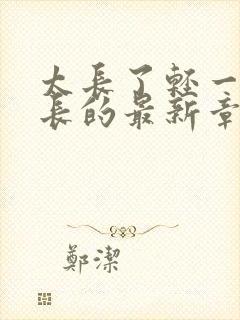 太長了輕一
長的最新章
鄭潔